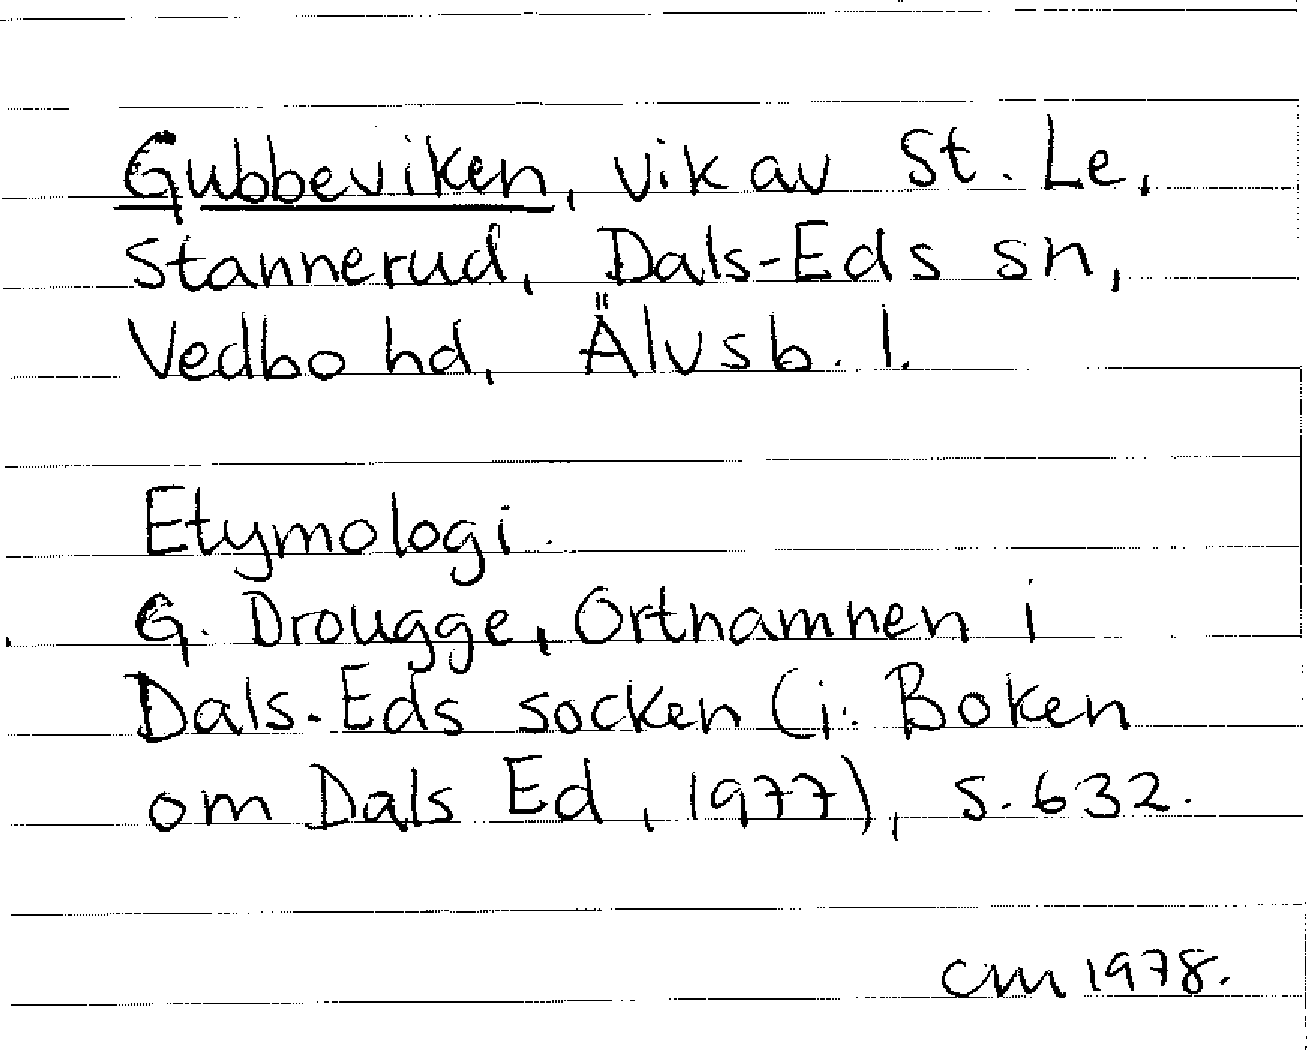 Gubbeviken, vik av St. Le,
Stannerud, Dals-Eds sn,
Vedbo hd, Älvsb. l.
Etymologi.
G. Drougge, Ortnamnen i
Dals-Eds socken (i: Boken
om Dals Ed, 1977), s. 632.
CM 1978.